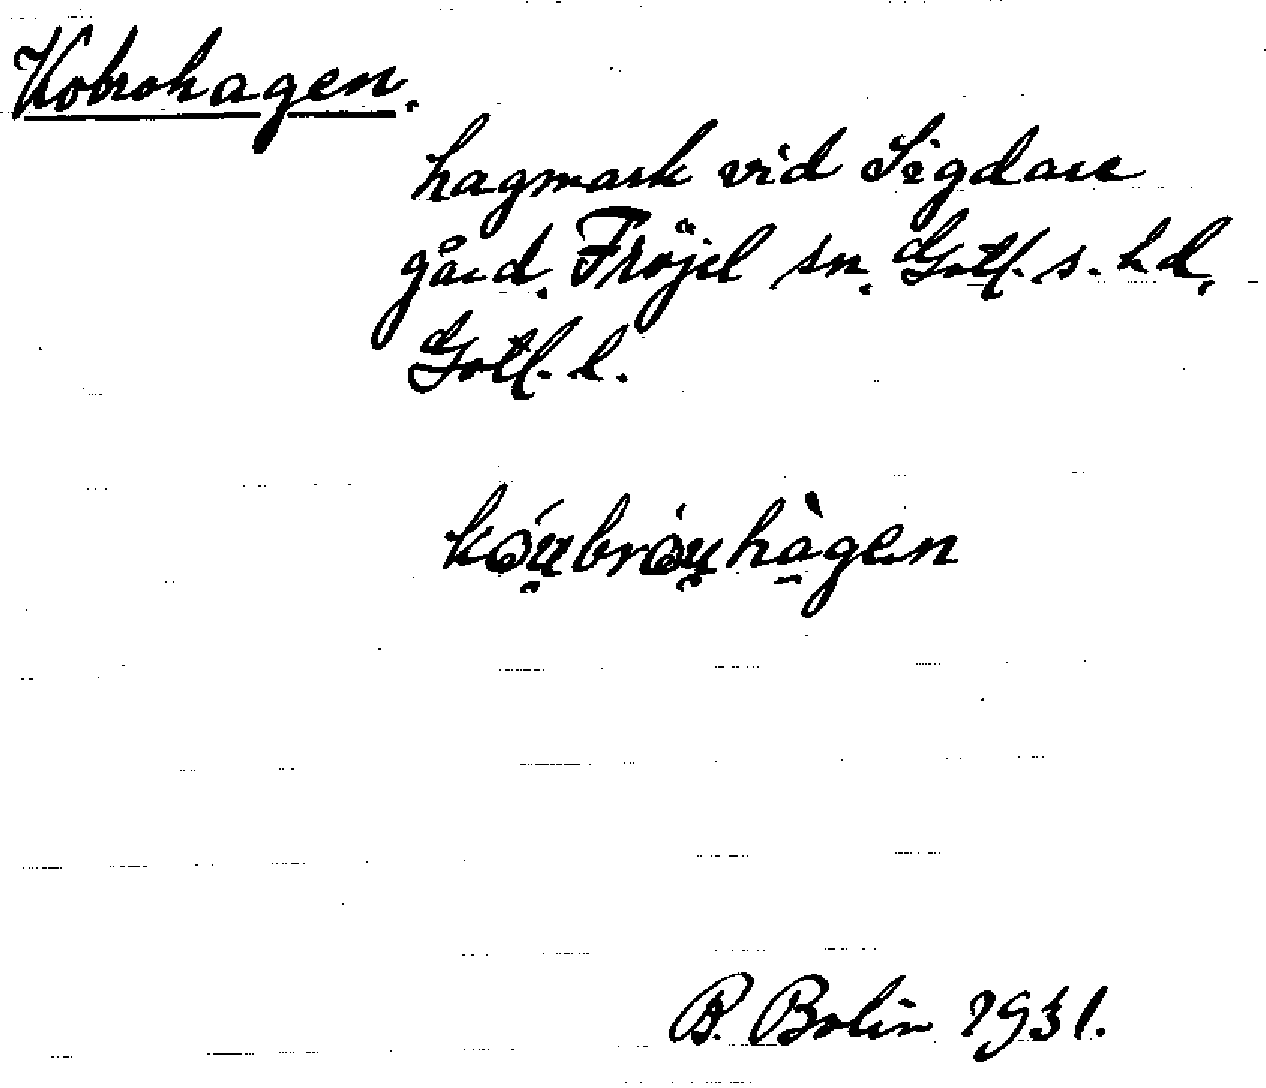 Kobrohagen.
hagmark vid Sigdare
gård. Fröjel sn. Gotl. s. hd,
Gotl. l.
kóu̯bróu̯hàgen
B. Bolin 1931.